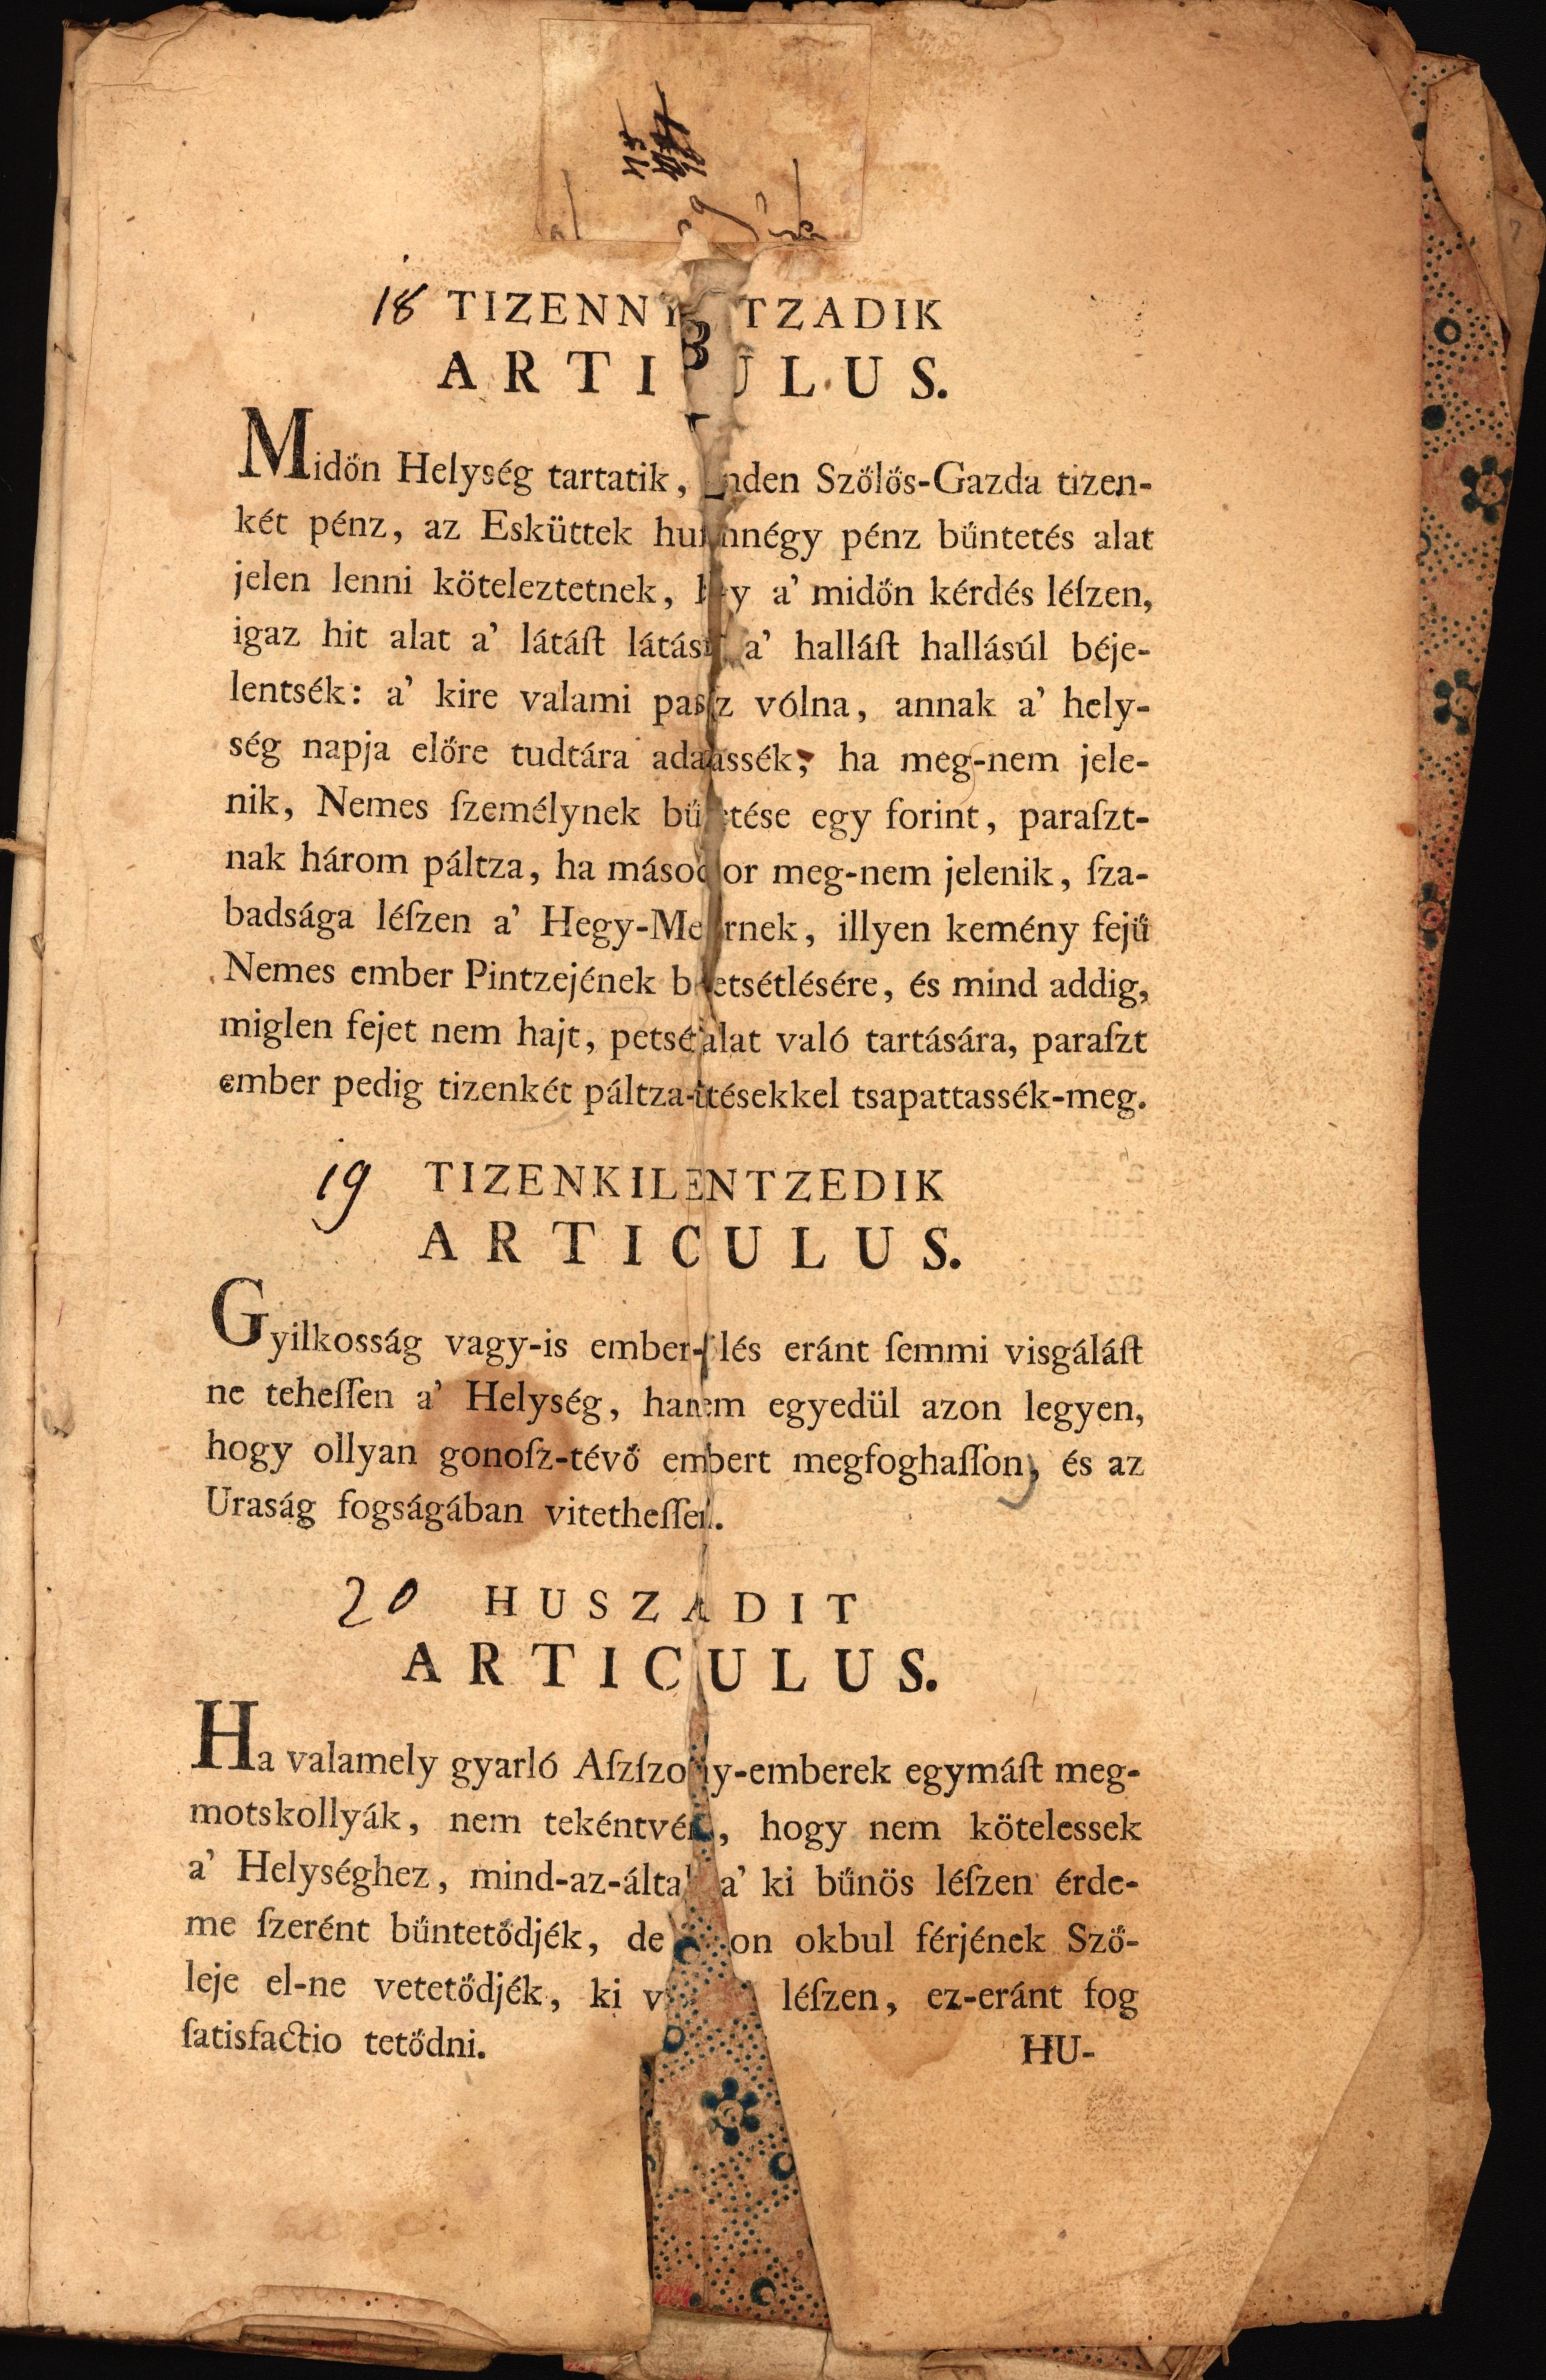 18 TIZENNYOLTZADIK
ARTICULUS.
Midőn Helység tartatik, minden Szőlős-Gazda tizen-
két pénz, az Esküttek huszonnégy pénz büntetés alat
jelen lenni köteleztetnek, hogy a’ midőn kérdés léſzen,
igaz hit alat a’ látáſt látásúl a’ halláſt hallásúl béje-
lentsék: a’ kire valami panasz vólna, annak a’ hely-
ség napja előre tudtára adattassék, ha meg-nem jele-
nik, Nemes ſzemélynek büntetése egy forint, paraſzt-
nak három páltza, ha másodszor meg-nem jelenik, ſza-
badsága léſzen a’ Hegy-Mesternek, illyen kemény fejű
Nemes ember Pintzejének bepetsétlésére, és mind addig,
miglen fejet nem hajt, petsét alat való tartására, paraſzt
ember pedig tizenkét páltza-ütésekkel tsapattassék-meg.
19 TIZENKILENTZEDIK
ARTICULUS.
Gyilkosság vagy-is ember-ölés eránt ſemmi visgáláſt
ne teheſſen a’ Helység, hanem egyedül azon legyen,
hogy ollyan gonoſz-tévő embert megfoghaſſon, és az
Uraság fogságában vitetheſſen.
20 HUSZADIT
ARTICULUS.
Ha valamely gyarló Aſzſzony-emberek egymáſt meg-
motskollyák, nem tekéntvén, hogy nem kötelessek
a’ Helységhez, mind-az-által a’ ki bűnös léſzen érde-
me ſzerént büntetődjék, de azon okbul férjének Sző-
leje el-ne vetetődjék, ki léſzen, ez-eránt fog
ſatisfactio tetődni.
HU-